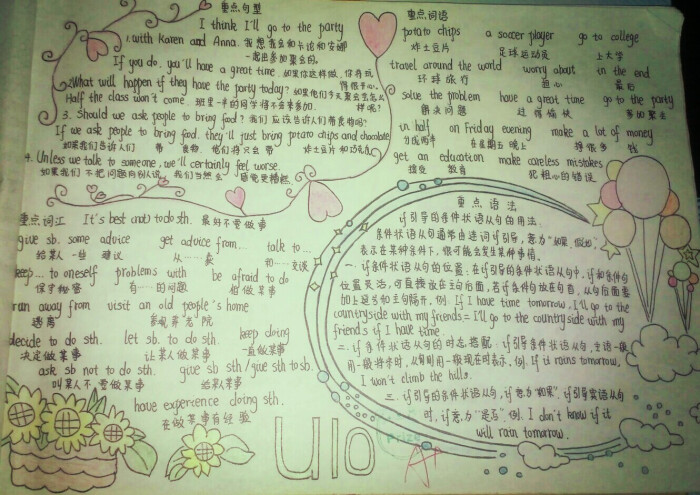 重点句型
I think I'll go to the party
1. with Karen and Anna. 我想我会和卡伦和安娜
一起去参加聚会的.
If you do, you'll have a great time. 如果你这样做, 你将玩
得很开心.
2. What will happen if they have the party today? 如果他们今天聚会会怎么
样呢?
Half the class won't come. 班里一半的同学将不会来参加.
3. Should we ask people to bring food? 我们应该告诉人们带食物吗?
If we ask people to bring food, they'll just bring potato chips and chocolate
如果我们告诉人们 带 食物, 他们将只会 带 炸土豆片和巧克力
4. Unless we talk to someone, we'll certainly feel worse.
如果我们 不把问题向别人说, 我们当然会 感觉更糟糕.
重点词语
potato chips a soccer player go to college
炸土豆片 足球运动员 上大学
travel around the world worry about in the end
环球旅行 担心 最后
solve the problem have a great time go to the party
解决问题 过得愉快 参加聚会
in half on Friday evening make a lot of money
分成两半 在星期五晚上 挣很多 钱
get an education make careless mistakes
接受 教育 犯粗心的错误
重点词汇 It's best (not) to do sth. 最好不要做事
give sb. some advice get advice from... talk to...
给某人一些 建议 从……获 和…交谈
keep... to oneself problems with be afraid to do
保守秘密 有…的问题 怕做某事
run away from visit an old people's home
逃离 参观养老院
decide to do sth. let sb. to do sth. keep doing
决定做某事 让某人做某事 一直做某事
ask sb not to do sth. give sb sth/give sth to sb.
叫某人不要做某事 给某人某事
have experience doing sth.
在做某事有经验
重点语法
if引导的条件状语从句的用法.
条件状语从句通常由连词if引导, 意为"如果, 假如",
表示在某种条件下, 很可能会发生某种事情.
一. if条件状语从句的位置: 在if引导的条件状语从句中, if和条件句
位置灵活, 可直接放在主句后面, 若if条件句放在句首, 从句后面要
加上逗号和主句隔开. 例: If I have time tomorrow, I'll go to the
countryside with my friends = I'll go to the countryside with my
friends if I have time.
二. if条件状语从句的时态搭配: if引导条件状语从句, 主语一般
用一般将来时, 从句则用一般现在时表示. 例: If it rains tomorrow,
I won't climb the hills.
三. if引导的条件状语从句, if意为"如果". if引导宾语从句
时, if意为"是否". 例: I don't know if it
will rain tomorrow.
U10